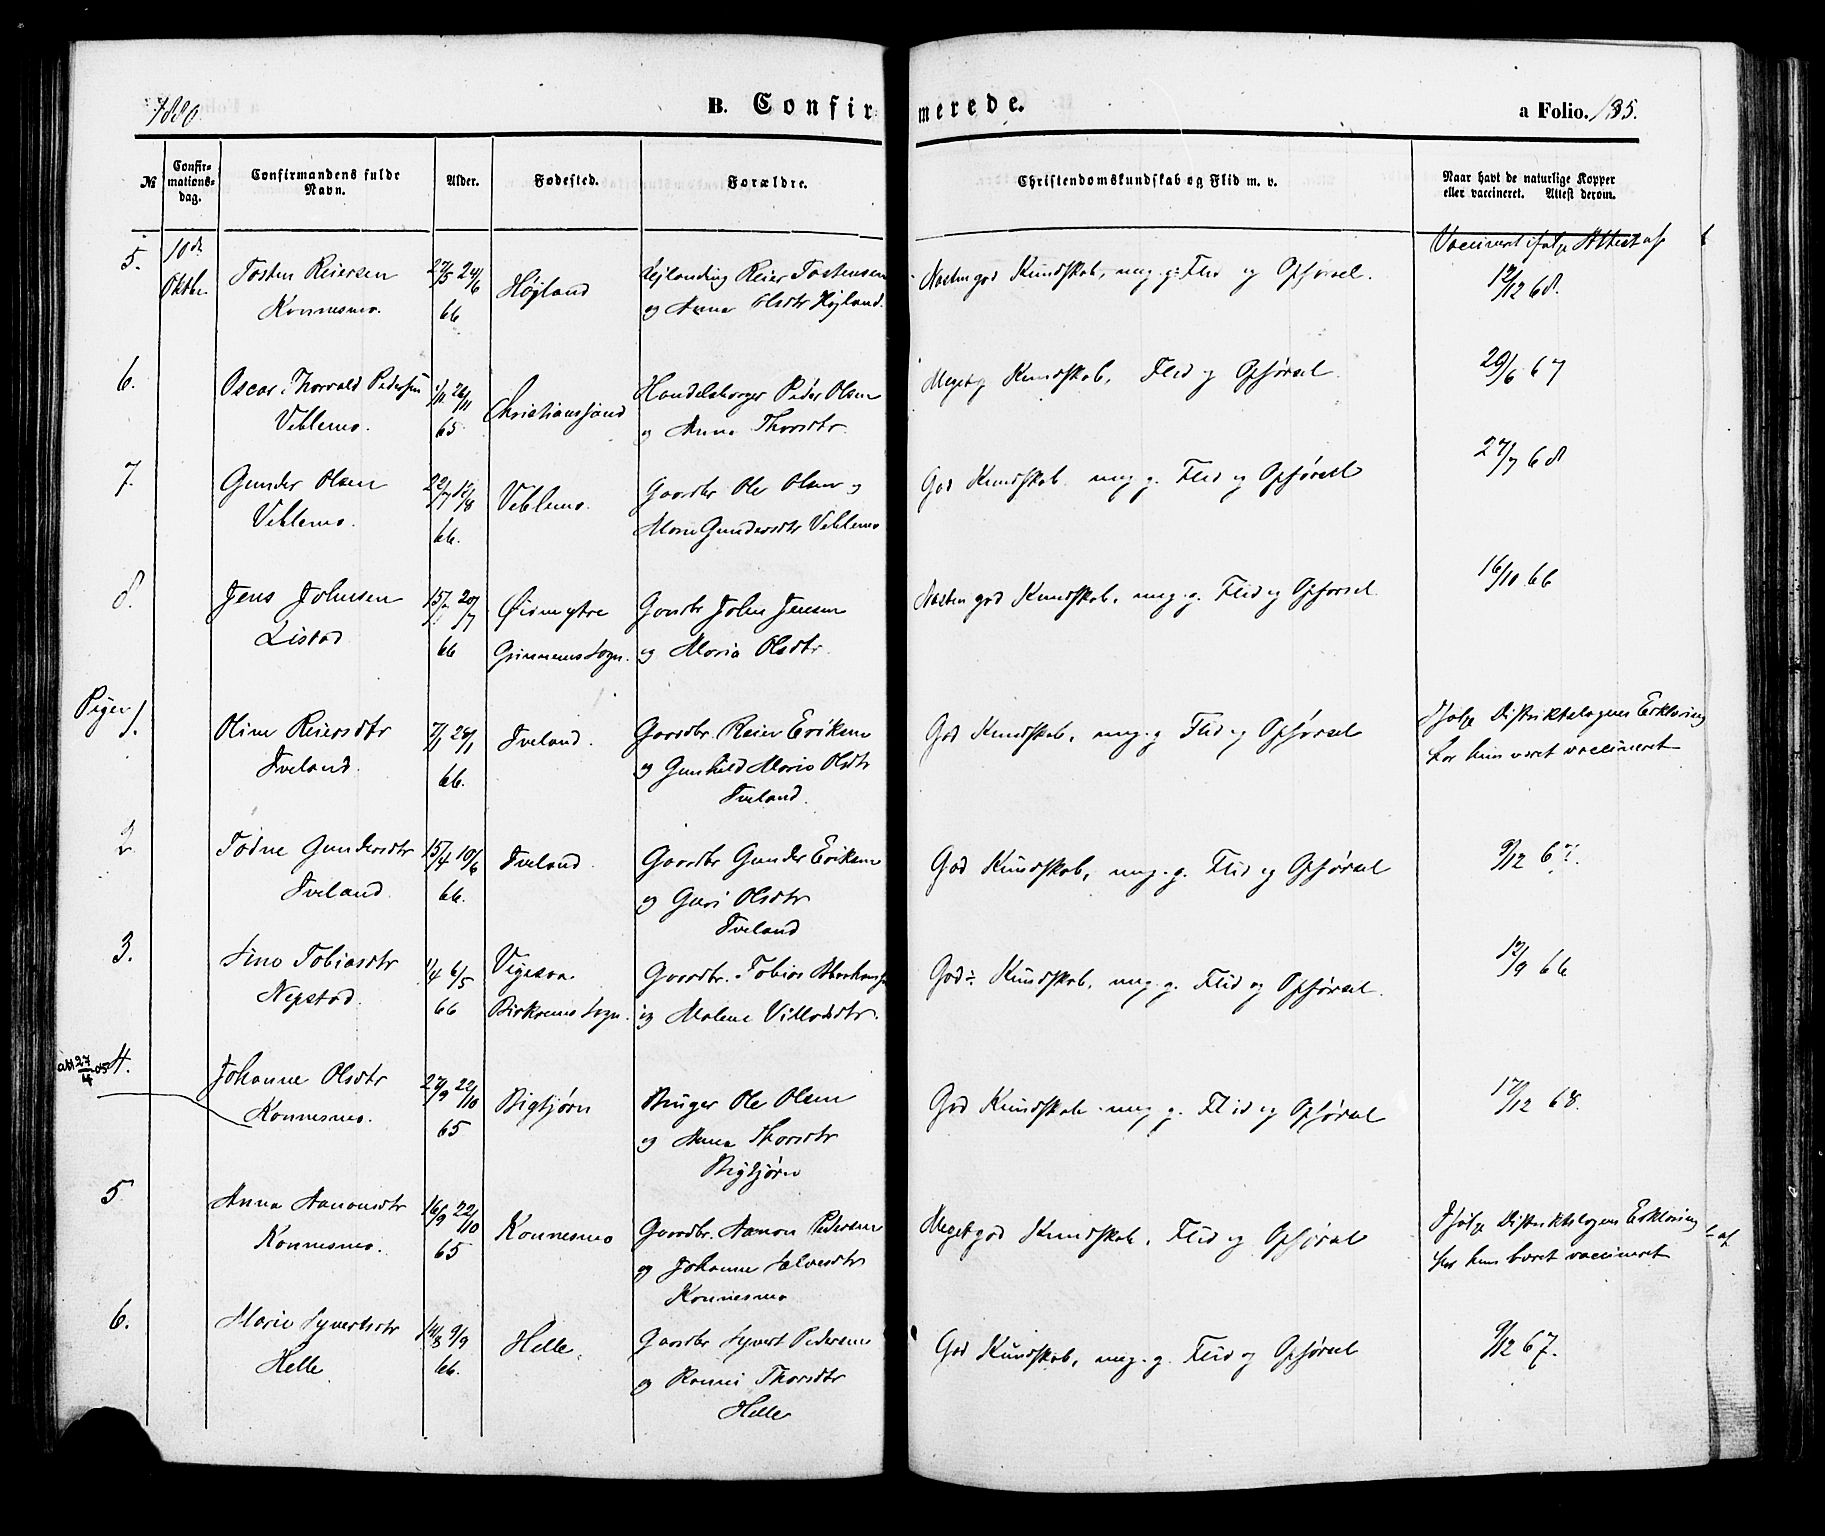 1880.
B. Confirmerede.
a Folio. 135.
№
Confirmationsdag.
Confirmandens fulde Navn.
Alder.
Fødested.
Forældre.
Christendomskundskab og Flid m. v.
Naar havt de naturlige Kopper eller vaccineret. Attest derom.
5.
10de Oktbr.
Tosten Reiersen
Konnesmo.
27/5 24/6
66
Højland
Reier Tostensen
og Anna Olsdtr Højland.
Næsten god Kundskab, meg. g. Flid og Opførsel.
Vaccineret ifølge Attest af
12/12 68.
6.
Oscar Thorvald Pedersen
Veblemo.
1/11 26/11
65
Christianssand
Handelsborger Peder Olsen
og Anna Thorsdtr.
Meget g Kundskab, Flid og Opførsel.
29/6 67
7.
Gunder Olsen
Veblemo.
22/7 12/8
66.
Veblemo.
Gaardbr Ole Olsen og
Maren Gundersdtr Veblemo
God Kundskab. meg. g. Flid og Opførsel
27/7 68
8.
Jens Johnsen
Listad
20/7
66
Øidneytre
Grinnems Sogn.
Gaardbr John Jensen
og Maria Olsdtr.
Næsten god Kundskab, meg. g. Flid og Opførsel.
16/10 66
Piger 1.
Oline Reiersdtr
Tveland.
7/1 24/1
66.
Tveland.
Gaardbr. Reier Eriksen
og Gunhild Maria Olsdtr
Tveland.
God Kundskab, meg. g Flid og Opførsel
Ifølge Distriktslægens Erklæring
har hun været vaccineret
2
Todne Gundersdtr
Tveland.
15/4 10/6
66.
Tveland.
Gaardbr Gunder Eriksen
og Guri Olsdtr
Tveland
God Kundskab, meg. g. Flid og Opførsel
9/12 67.
3.
Sina Tobiasdtr
Nepstad.
1/4 6/5
66
Vigesaa
Birkrems Sogn.
Gaardbr. Tobias
og Malene Villadsdtr.
God ÷ Kundskab, meg. g. Flid og Opførsel.
12/9 66
27/4 05
4.
Johanne Olsdtr
Konnesmo.
27/9 22/10
65
Bigtjørn
Bruger Ole Olsen
og Anna Thorsdtr
Bigtjørn
God Kundskab. meg. g. Flid og Opførsel
17/12 68.
5
Anna Aanonsdtr
Konnesmo.
16/9 22/10
65
Konnesmo
Gaardbr. Aanon Pedersen
og Johanne Salvesdtr
Konnesmo
Meget god Kundskab, Flid og Opførsel
Ifølge Distriktslægens Erklæring
har hun været vaccineret
af
6.
Marie Syvertsdtr
Helle.
14/8 9/9
66.
Helle.
Gaardbr Syvert Pedersen
og Ronnei Thorsdtr
Helle
God Kundskab, meg. g. Flid og Opførsel
9/12 67.